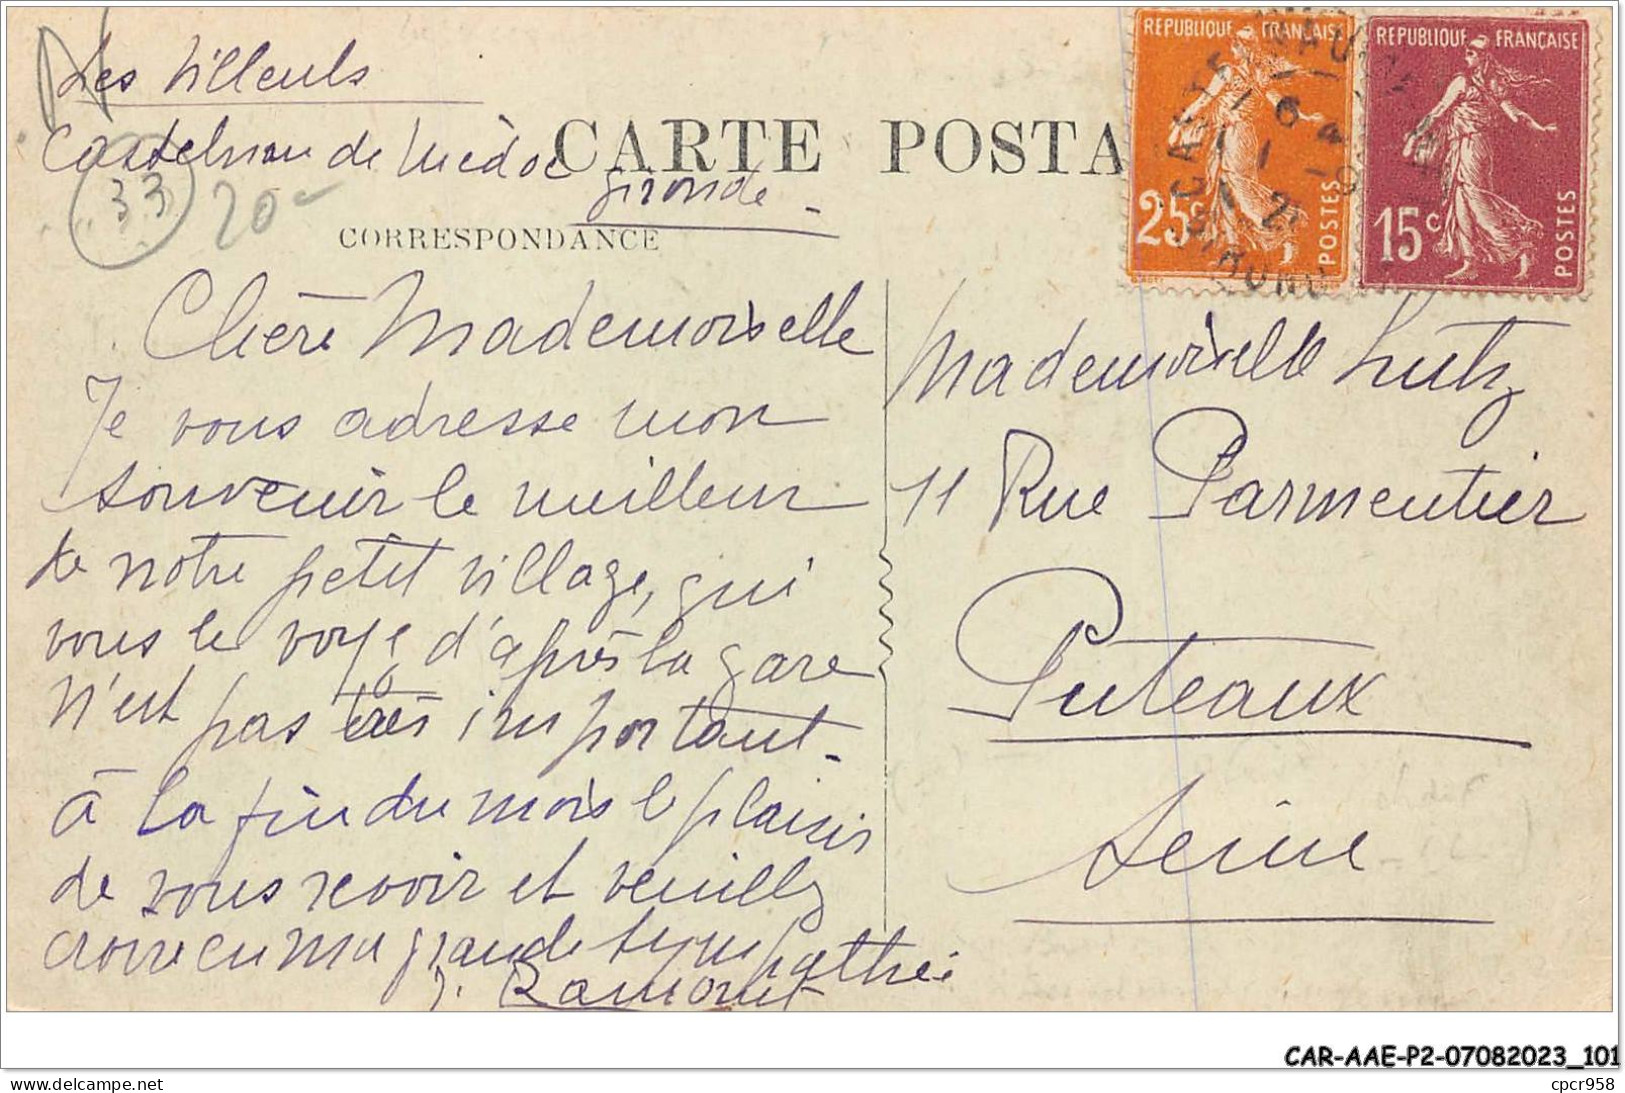 Les Tilleuls
Castelnau de Médoc
Gironde
33
20
CARTE POSTA
CORRESPONDANCE
REPUBLIQUE FRANÇAISE
25c
POSTES
REPUBLIQUE FRANÇAISE
15c
POSTES
Chère Mademoiselle
Je vous adresse mon
souvenir le meilleur
de notre petit village, qui
vous le voyez d'après la gare
n'est pas très important -
à la fin du mois le plaisir
de vous revoir et veuillez
croire en ma grande sympathie
J. Ramonet
Mademoiselle Lutz
11 Rue Parmentier
Puteaux
Seine
CAR-AAE-P2-07082023_101
https://www.delcampe.net
cpcr958